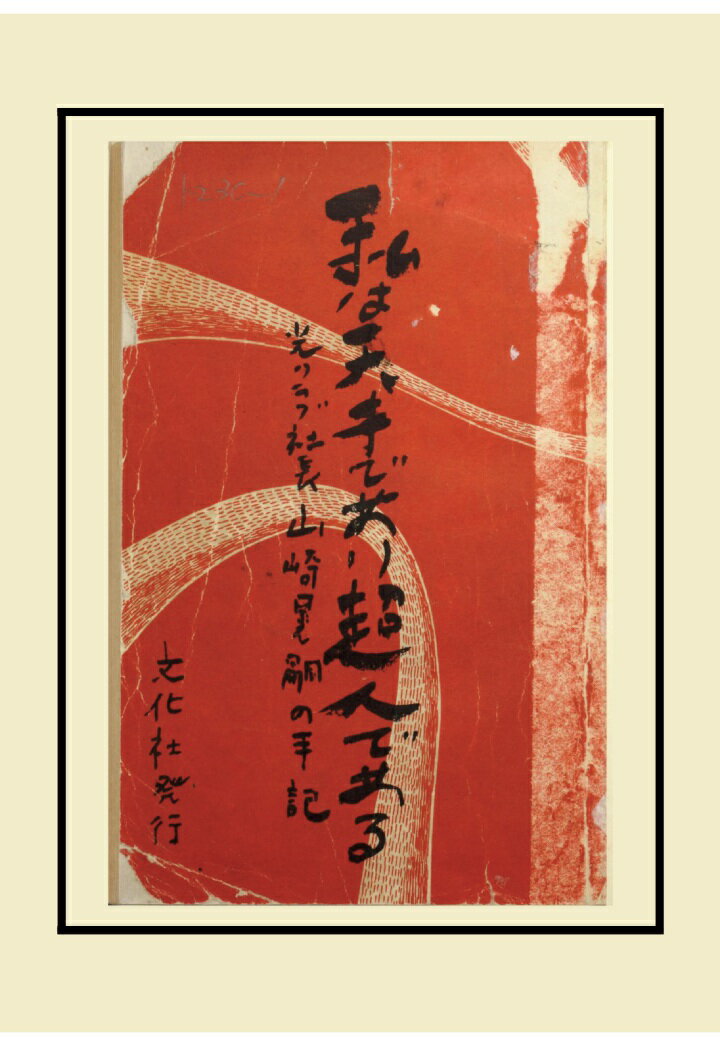 私は天才であり超人である
光クラブ社長山崎晃嗣の手記
文化社発行